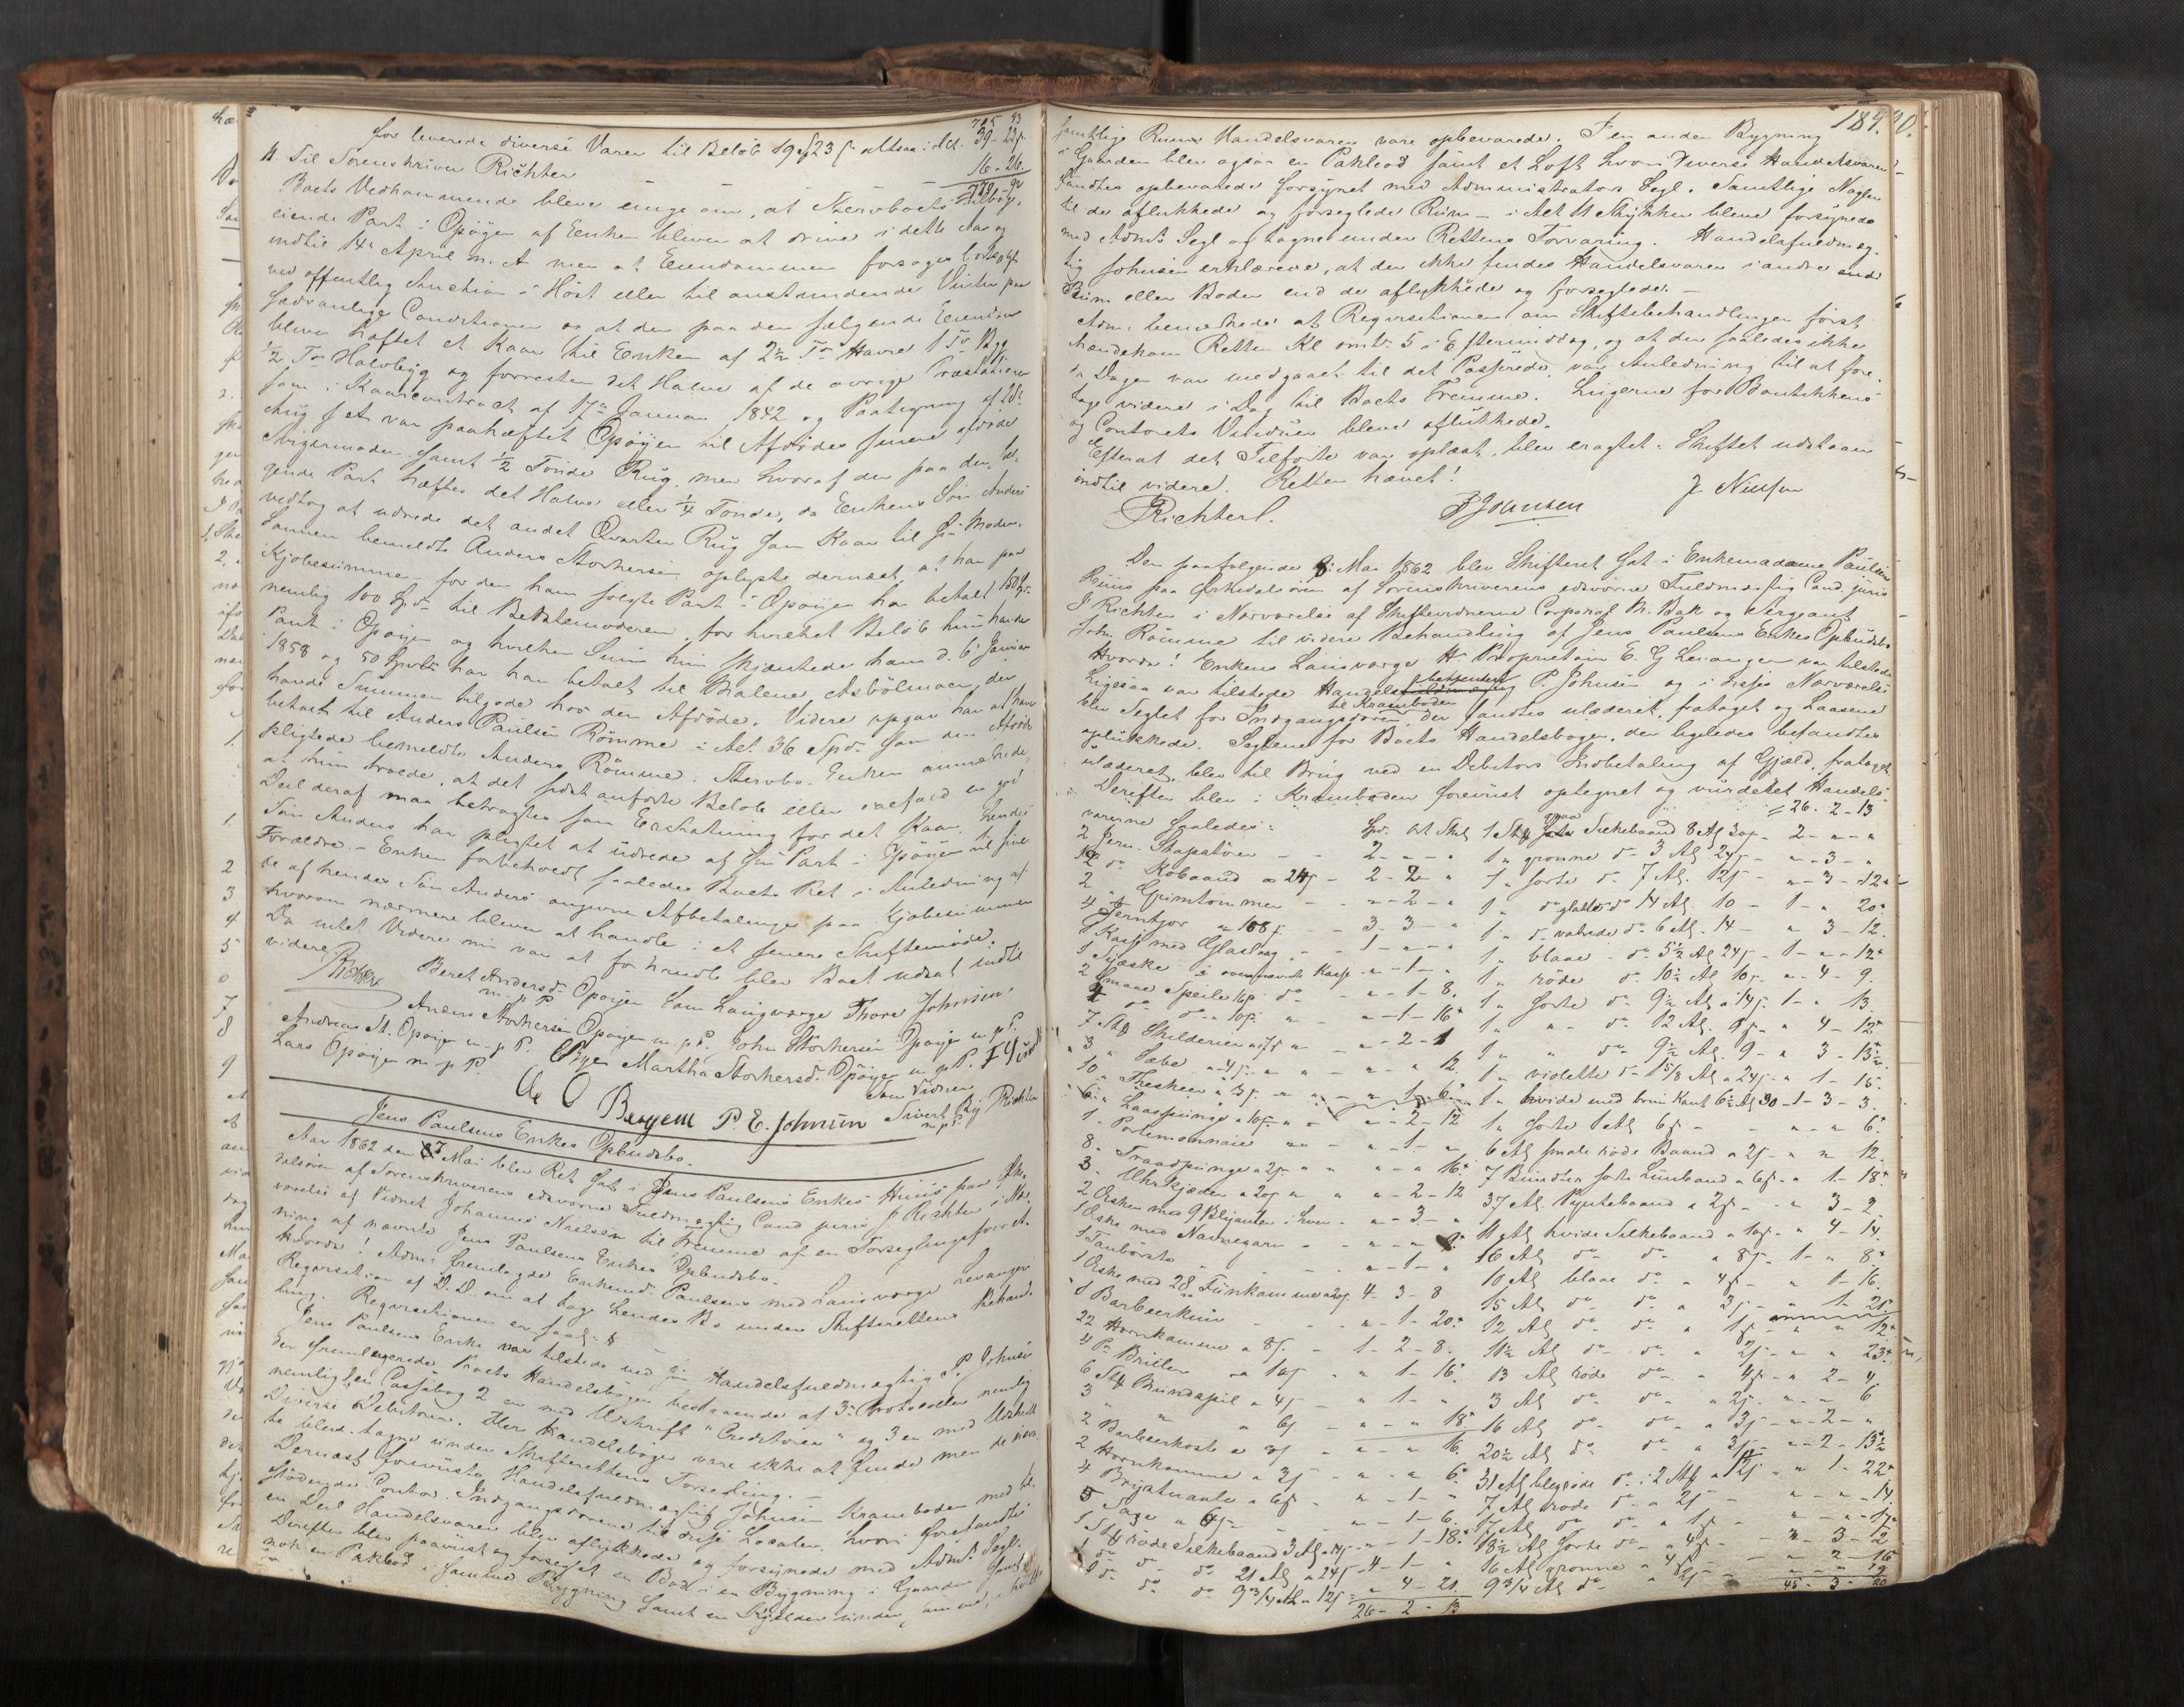 for leverede diverse Varer til Beløb 19 23 altsaa i Alt. 39 - 23
Til Sorenskriver Richter 16 - 26
Boets Vedkommende bleve enige om, at Stervboets tilhør-
eiende Part i Opøyen af Enken bliver at drive i dette Aar og
indtil 14de April n. A. men at Eiendommen forsøges bortsolgt
ved offentlig Auction i Høst eller til anstundende Vinter paa
sædvanlige Conditioner og at der paa den sælgende Eiendom
bliver hæftet et Kaar til Enken af 2½ Tde Havre 1 Tde Byg
½ Tde Halvbyg og forresten det Halve af de øvrige Præstationer
som i Kaarcontract af 17de Januar 1842 og Paategning af
Aug s. A. var paahæftet Opøyen til Afdødes senere afdøde
Svigermoder samt ½ Tønde Rug, men hvoraf der paa den sæl-
gende Part hæftes det Halve eller ¼ Tønde, da Enkens Søn Anders
vedtog at udrede det andet Qvarter Rug som Kaar til sin Moder.
Sønnen bemeldte Anders Storkersen oplyste dernæst at han paa
Kjøbesummen for den ham solgte Part i Opøyen har betalt 150 Spd.
nemlig 100 Spd. til Bedstemoderen, for hvilket Beløb hun havde
Pant i Opøyen og hvilken Sum hun skjænkede ham d. 6te Januar
1858 og 50 Spd. har han betalt til Malene Asbølmoen, der
havde Summen tilgode hos den Afdøde. Videre opgav han at have
betalt til Anders Paulsen Rømme i Alt 36 Spd. som den Afdøde
pligtede bemeldte Anders Rømme. Stervbo-Enken anmeldte,
at hun troede, at det sidst anførte Beløb eller ialfald en god
Deel deraf maa betragtes som Erstatning for det Kaar, hendes
Søn Anders har pligtet at udrede af sin Part i Opøyen til sine
Forældre. - Enken forbeholdt saaledes Boets Ret i Anledning af
de af hendes Søn Anders angivne Afbetalinger paa Kjøbesummen
hvorom nærmere bliver at handle i et senere Skiftemøde.
Da intet Videre nu var at forhandle blev Boet udsat indtil
videre.
Richter Beret Andersd. Opøyen Som Laugværge Thore Johnsen.
m. p. P.
Anders Storkersen Opøyen m. p. P. John Storkersen Opøyen m. p. P.
Andreas St. Opøyen m. p. P. Martha Storkersd. Opøyen m. p. P.
Lars Opøyen m. p. P. Som Vidner
Bergem P. E. Johnsen Sivert
Jens Paulsens Enkes Opbudsbo.
Aar 1862 den 7 Mai blev Ret sat i Jens Paulsens Enkes Huus paa Ørke-
dalsøren af Sorenskriverens edsvorne Fuldmægtig Cand juris J Richter i Nær-
værelse af Vidnet Johannes Nielsen til Fremme af en Forseglingsforret-
ning af nævnte Jens Paulsens Enkes Opbudsbo.
Hvorda! Adm: fremlagde Enkemd. Paulsens med Laugværge Levanger
Reqvisition af D. D. om at tage hendes Bo under Skifterettens Behand-
ling. Reqvisitionen er saal:
Jens Paulsens Enke var tilstede med sin Handelsfuldmægtig P. Johnsen
der fremleverede Boets Handelsbøger bestaaende af 3de Protocoller nemlig
nemlig en Cassabog 2 en med Udskrift "Creditorer" og 3 en med Udskrift
Diverse Debitorer. Flere Handelsbøger vare ikke at finde men de nævn-
te bleve tagne under Skifterettens Forsegling. -
Dernæst foreviiste Handelsfuldmægtig Johnsen Kramboden med til-
stødende Contor. Indgangsdørene til disse Localer, hvori forefandtes
en Deel Handelsvarer blev aflukkede og forsynede med Admrs Segl.
Derefter blev paaviist og forseglet en Bod i en Bygning i Gaarden samt
nok en Pakbod i samme Bygning samt en Kjelder under
189.
samtlige Rum Handelsvarer vare opbevarede. I en anden Bygning
i Gaarden blev ogsaa en Pakbod samt et Loft hvori diverse Handelsvarer
fandtes opbevarede forsynet med Administrators Segl. Samtlige Nøgler
til de aflukkede og forseglede Rum - i Alt 11 Stykker bleve forsynede
med Admrs Segl og tagne under Rettens Forvaring. Handelsfuldmæg-
tig Johnsen erklærede, at der ikke findes Handelsvarer i andre
Rum eller Boder end de aflukkede og forseglede. -
Adm: bemærkede at Reqvisitionen om Skiftebehandlingen først
ihændekom Retten Kl omtr. 5 i Eftermiddag, og at der saaledes ikke
da Dagen var medgaaet til det Passerede, var Anledning til at fore-
tage videre i Dag til Boets Fremme. Lugerne for Boutikkens
og Contorets Vinduer bleve aflukkede.
Efterat det Tilførte var oplæst, blev eragtet: Skiftet udstaaer
indtil videre. Retten hævet!
Richter. P Johnsen J Nielsen
Den paafølgende 8 Mai 1862 blev Skifteret sat i Enkemadame Paulsens
Huus paa Ørkedalsøren af Sorenskriverens edsvorne Fuldmægtig Cand. juris
J Richter i Nærværelse af Skiftevidnerne Corporal M. Bak og Sergeant
John Rømme til videre Behandling af Jens Paulsens Enkes Opbudsbo
Hvorda! Enkens Laugværge Hr Proprietair E. G Levanger var tilstede
Ligesaa var tilstede Handelsbetjent P. Johnsen og i disses Nærværelse
blev Seglet for Indgangsdøren til Kramboden, der fandtes ulæderet, frataget og Laasene
oplukkede. Seglene for Boets Handelsbøger, der ligeledes befandtes
ulæderet blev til Brug ved en Debitors Indbetaling af Gjæld, frataget
Derefter blev i Kramboden foreviist optegnet og vurderet Handels-
varerne saaledes: Spd. Ort Skil
2 Jern Stapstøer - 2 - " - "
12 do Købaand a 24 - 2 - 2 - "
2 " Grimtømmer - " - 2 - "
4 Jerntjor a 108 - 3 - 3 - "
1 Kasse med Glaslaag - 1 - " - "
1 Taske i ovennævnte Kasse - " - 1 - "
2 smaae Speile 16 do - " - 1 - 8.
7 Stk Skilderier
3 " Sæbe a 4 - 12
10 Theskeer a 3 - 1 - 6
6 " Laaspunge a 10 - " - 2 - 12
1 Portemonnaie - " - 1 - "
8 " Traadpunge a 2 - " - " - 16
3 " Uhrkjæder a 20 - " - 2 - 12
2 Æsker med 9 Blyanter i hver - " - 3 - "
1 Æske med Navnegarn
1 Tandbørste - " - 1 - "
1 Æske med 28 Finkamme a 20 4 - 3 - 8
1 Barbeerkniv - " - 1 - 20
22 Hornkamme a 8 - 1 - 2 - 8.
4 Pr Briller a 10 - " - 1 - 16
6 Stk Bundspil a 4 - " - 1 - "
3 " " a 6 - " - " - 18
2 Barbeerkoste a 8 - " - " - 16.
2 Hornkamme a 3 - " - " - 6
4 Brystnaale a 6 - " - 1 - "
5 Sager a 6 - " - 1 - 6.
1 Stk røde Silkebaand 3 Al a 14 - " - 1 - 18
1 do do do 21 Al a 24 - 4 - 1 - "
1 do do do 9¾ Al a 12 - " - 4 - 21.
26 - 2 - 13
= 26. 2 - 13
1 Stk graa Silkebaand 8 Al 30 - 2 - " - "
1 " grønne do 3 Al 24 - " - 3 - "
1 " sorte do 7 Al. 12 - " - 3 - 12
1 " do glatte do 14 Al. 10 - 1 - " 20
1 " do vatrede do 6 Al. 14 - " 3 - 12.
1 " blaae - do 5½ Al 24 - 1 - " - 12
1 " røde do 10½ Al 10 - " - 4 - 9.
1 " sorte do 9½ Al a 14 - 1 - " 13
1 " " do 12 Al. 9 - " 4 - 12
1 " " do 9½ Al. 9 - " 3 - 13½
1 " violette do 15/8 Al a 24 - " 1 - 15.
1 " hvide med brun Kant 6½ Al 30 - 1 - 3 - 3.
1 " sorte 1 Al 6 - " - " 6
6 Al smale røde Baand a 2 - " " 12.
7 Bundter sorte Liinbaand a 6 - " 1 - 18
37 Al. Pyntebaand a 2 - " 3 - 2
11 Al hvide Silkebaand a 10 - " 4 - 14.
16 Al do do a 8 - 1 - " 8
10 Al blaae do a 4 - " 1 - 16.
15 Al do do a 3 - " 1 - 21
12 Al do do a 1 - " " 12
11½ Al do do a 2 - " " 23
13 Al røde do a 4 - " 2 - 4.
3 Al do do a 2 - " - " 6
16 Al do do a 3 - " - 2 - "
20½ Al do do a 3 - " - 2 - 13½
31 Al blegrøde do i 2 Stk a 1½ - " 1 - 22
7 Al røde do a 2 - " - " - 14.
17 Al do do a 1 - " - " - 17
18½ Al sorte do a 4 - " 3 - 2
16 Al grønne a 4 - " 2 - 16
9¾ Al do a 2 - " - " 19
45 - 3 - 20